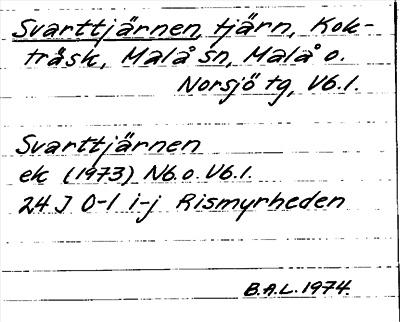 Svarttjärnen, tjärn, Kok-
träsk, Malå sn, Malå o.
Norsjö tg, Vb. l.
Svarttjärnen
ek (1973) Nb. o. Vb. l.
24 J 0-1 i-j Rismyrheden
B.A.L. 1974